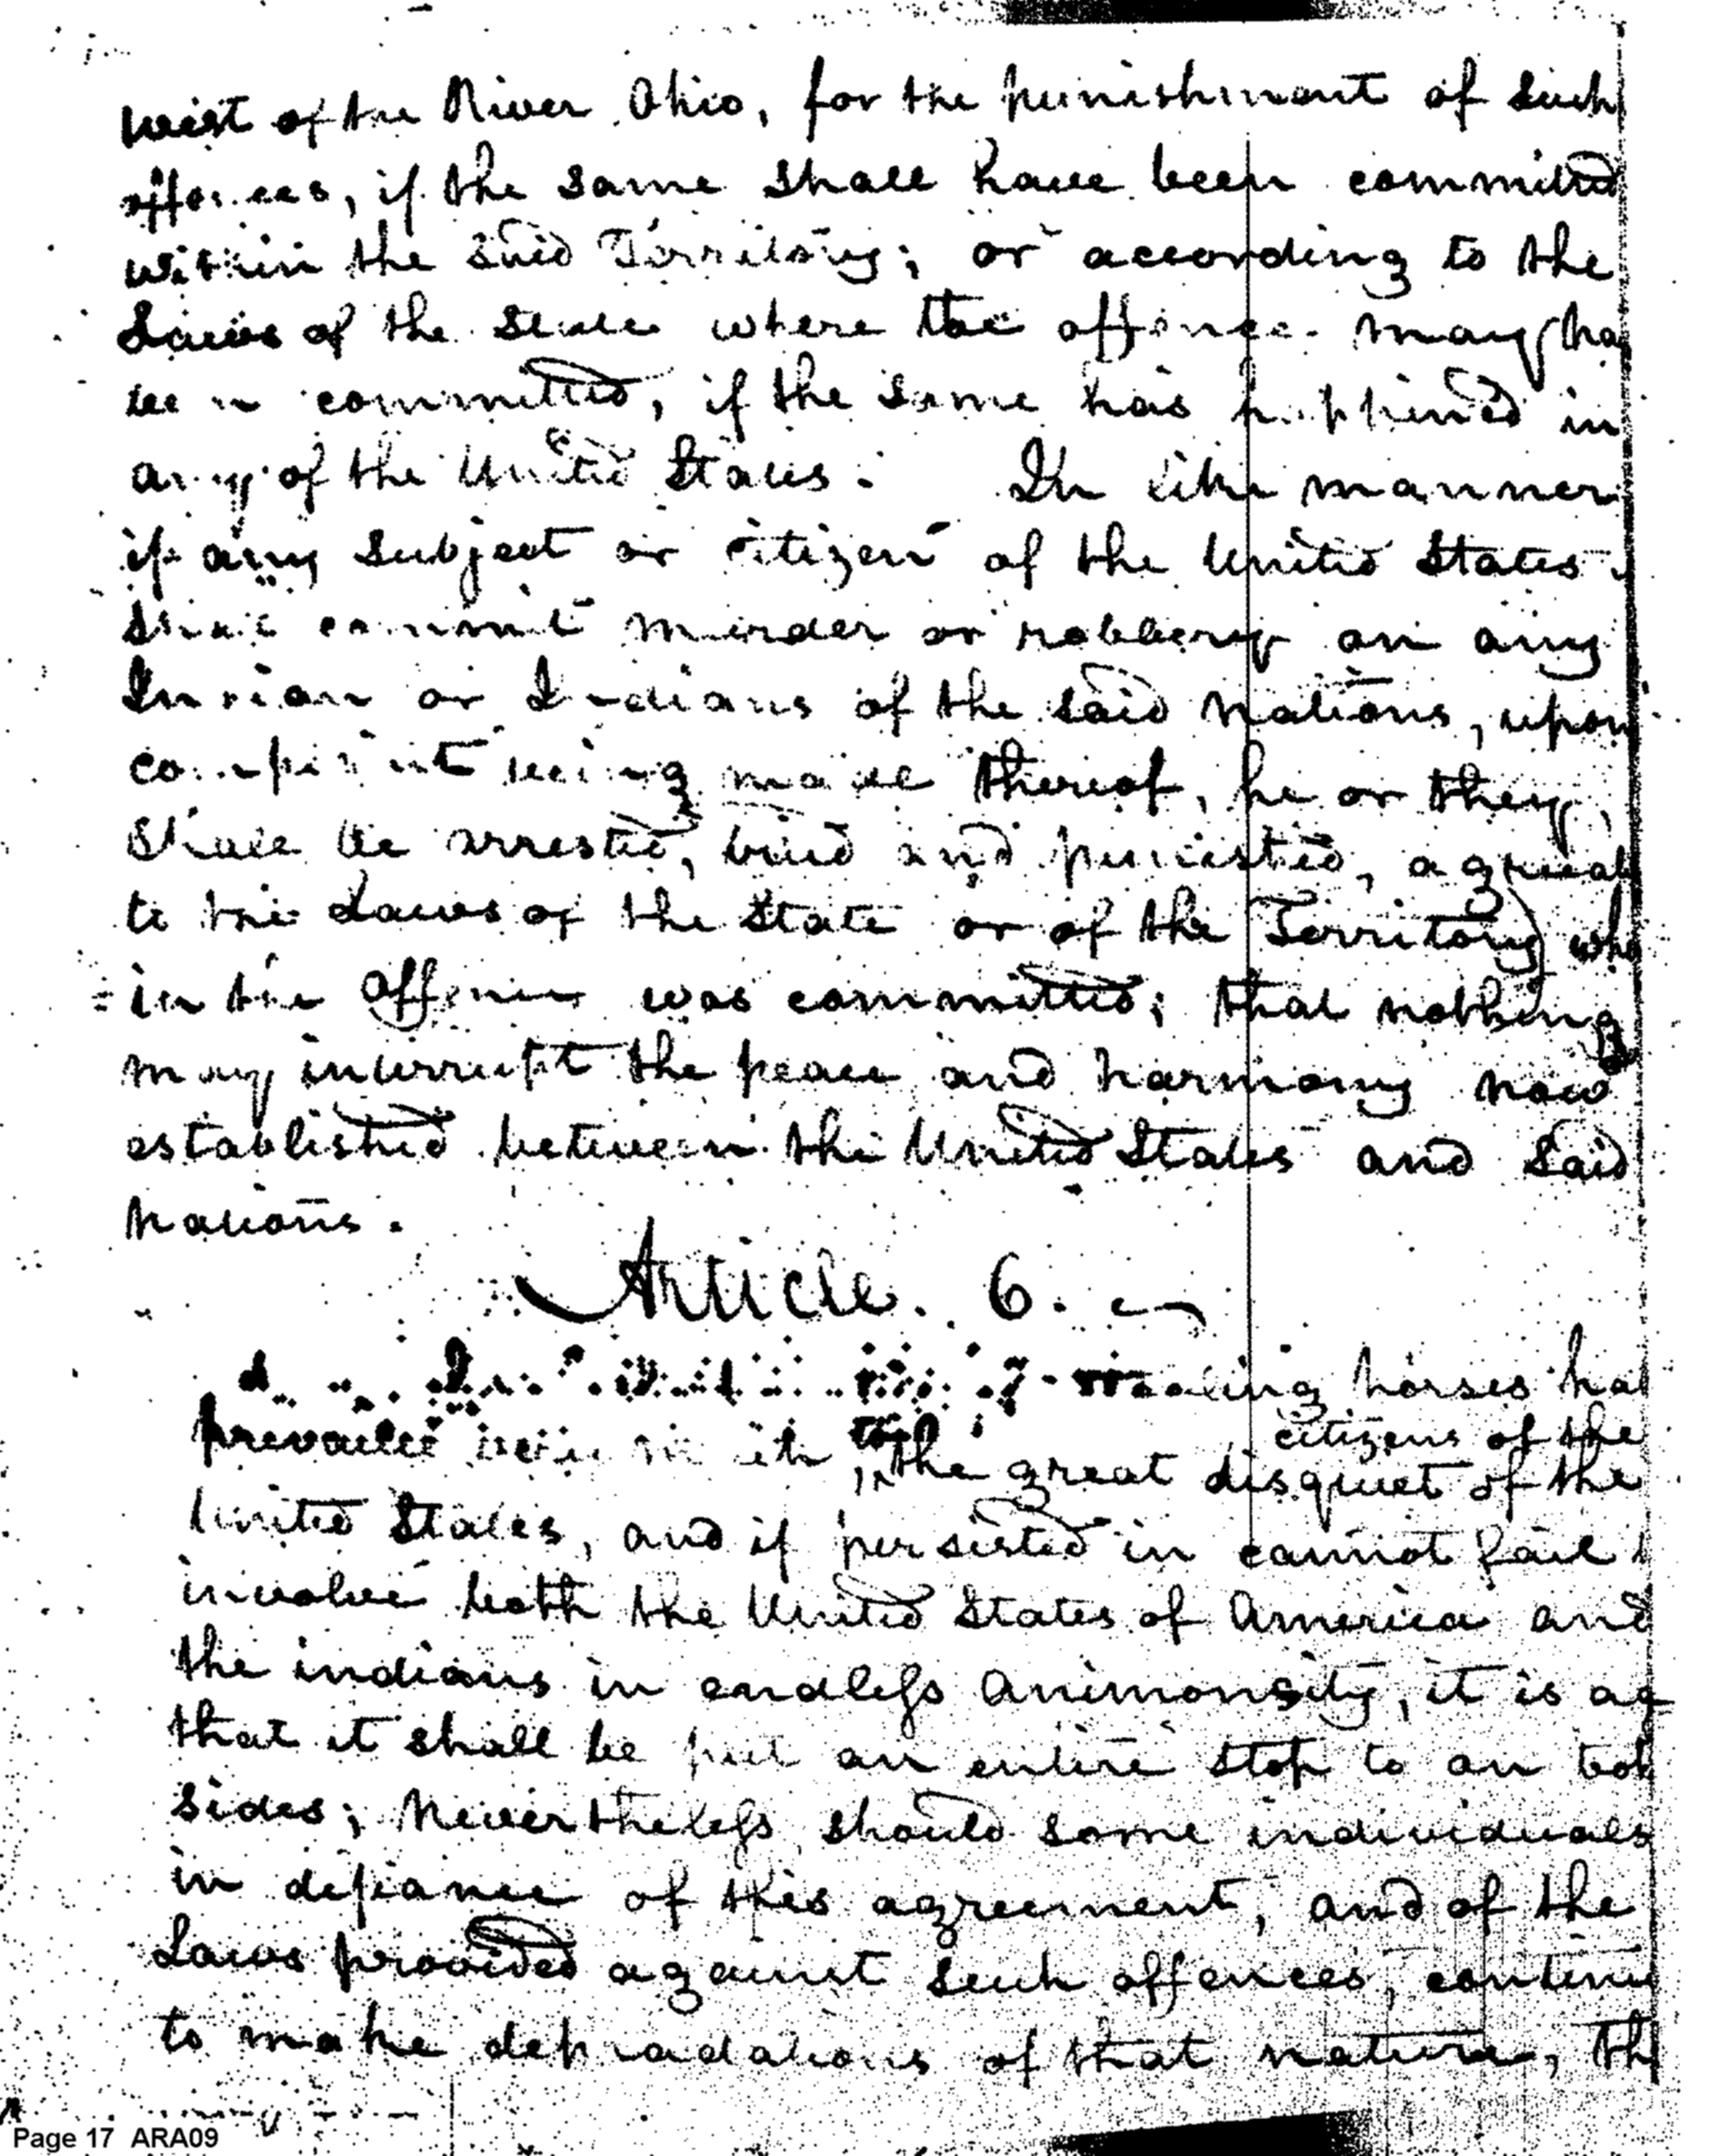 west of the River Ohio, for the punishment of such
offences, if the same shall have been committed
within the said Territory; or according to the
Laws of the State where the offence may ha
been committed, if the same has happined in
any of the United States. In like manner
if any subject or citizen of the United States
shall commit murder or robbery on any
Indian or Indians of the said nations, upon
complaint being made thereof, he or they,
shall be arrested, tried and punished, agreeab
to the Laws of the State or of the Territory whe
in the offence was committed; that nothing
may interrupt the peace and harmony now
established between the United States and said
nations.
Article. 6.
stealing horses has
prevailed to
citizens of the
the great disquiet of the
United States, and if persisted in cannot fail t
involve both the United States of America and
the indians in endless animonsity, it is ag
that it shall be put an entire stop to on bot
sides; nevertheless should some individuals
in defiance of this agreement, and of the
Laws provided against such offences, continu
to make depradations of that nature, th
Page 17 ARA09